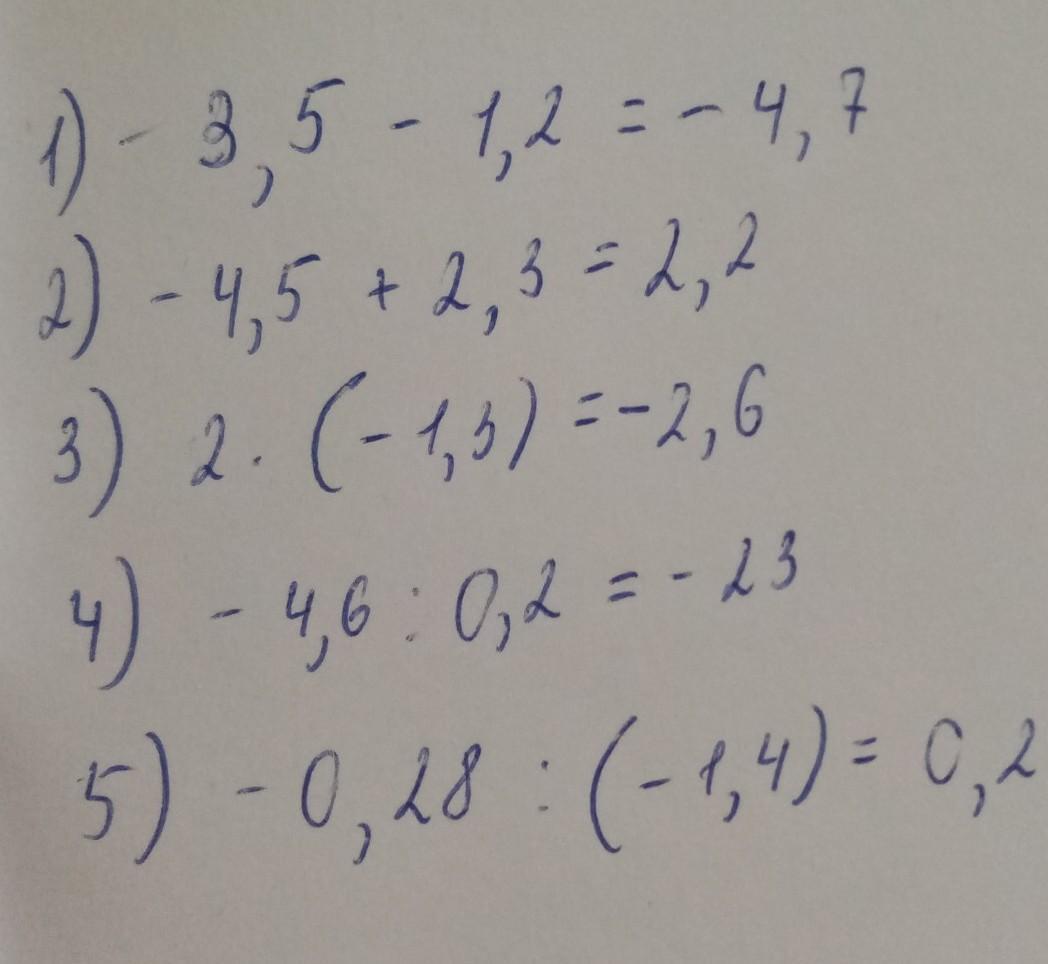 1) - 3,5 - 1,2 = - 4,7
2) - 4,5 + 2,3 = 2,2
3) 2 · (-1,3) = -2,6
4) - 4,6 : 0,2 = - 23
5) - 0,28 : (-1,4) = 0,2